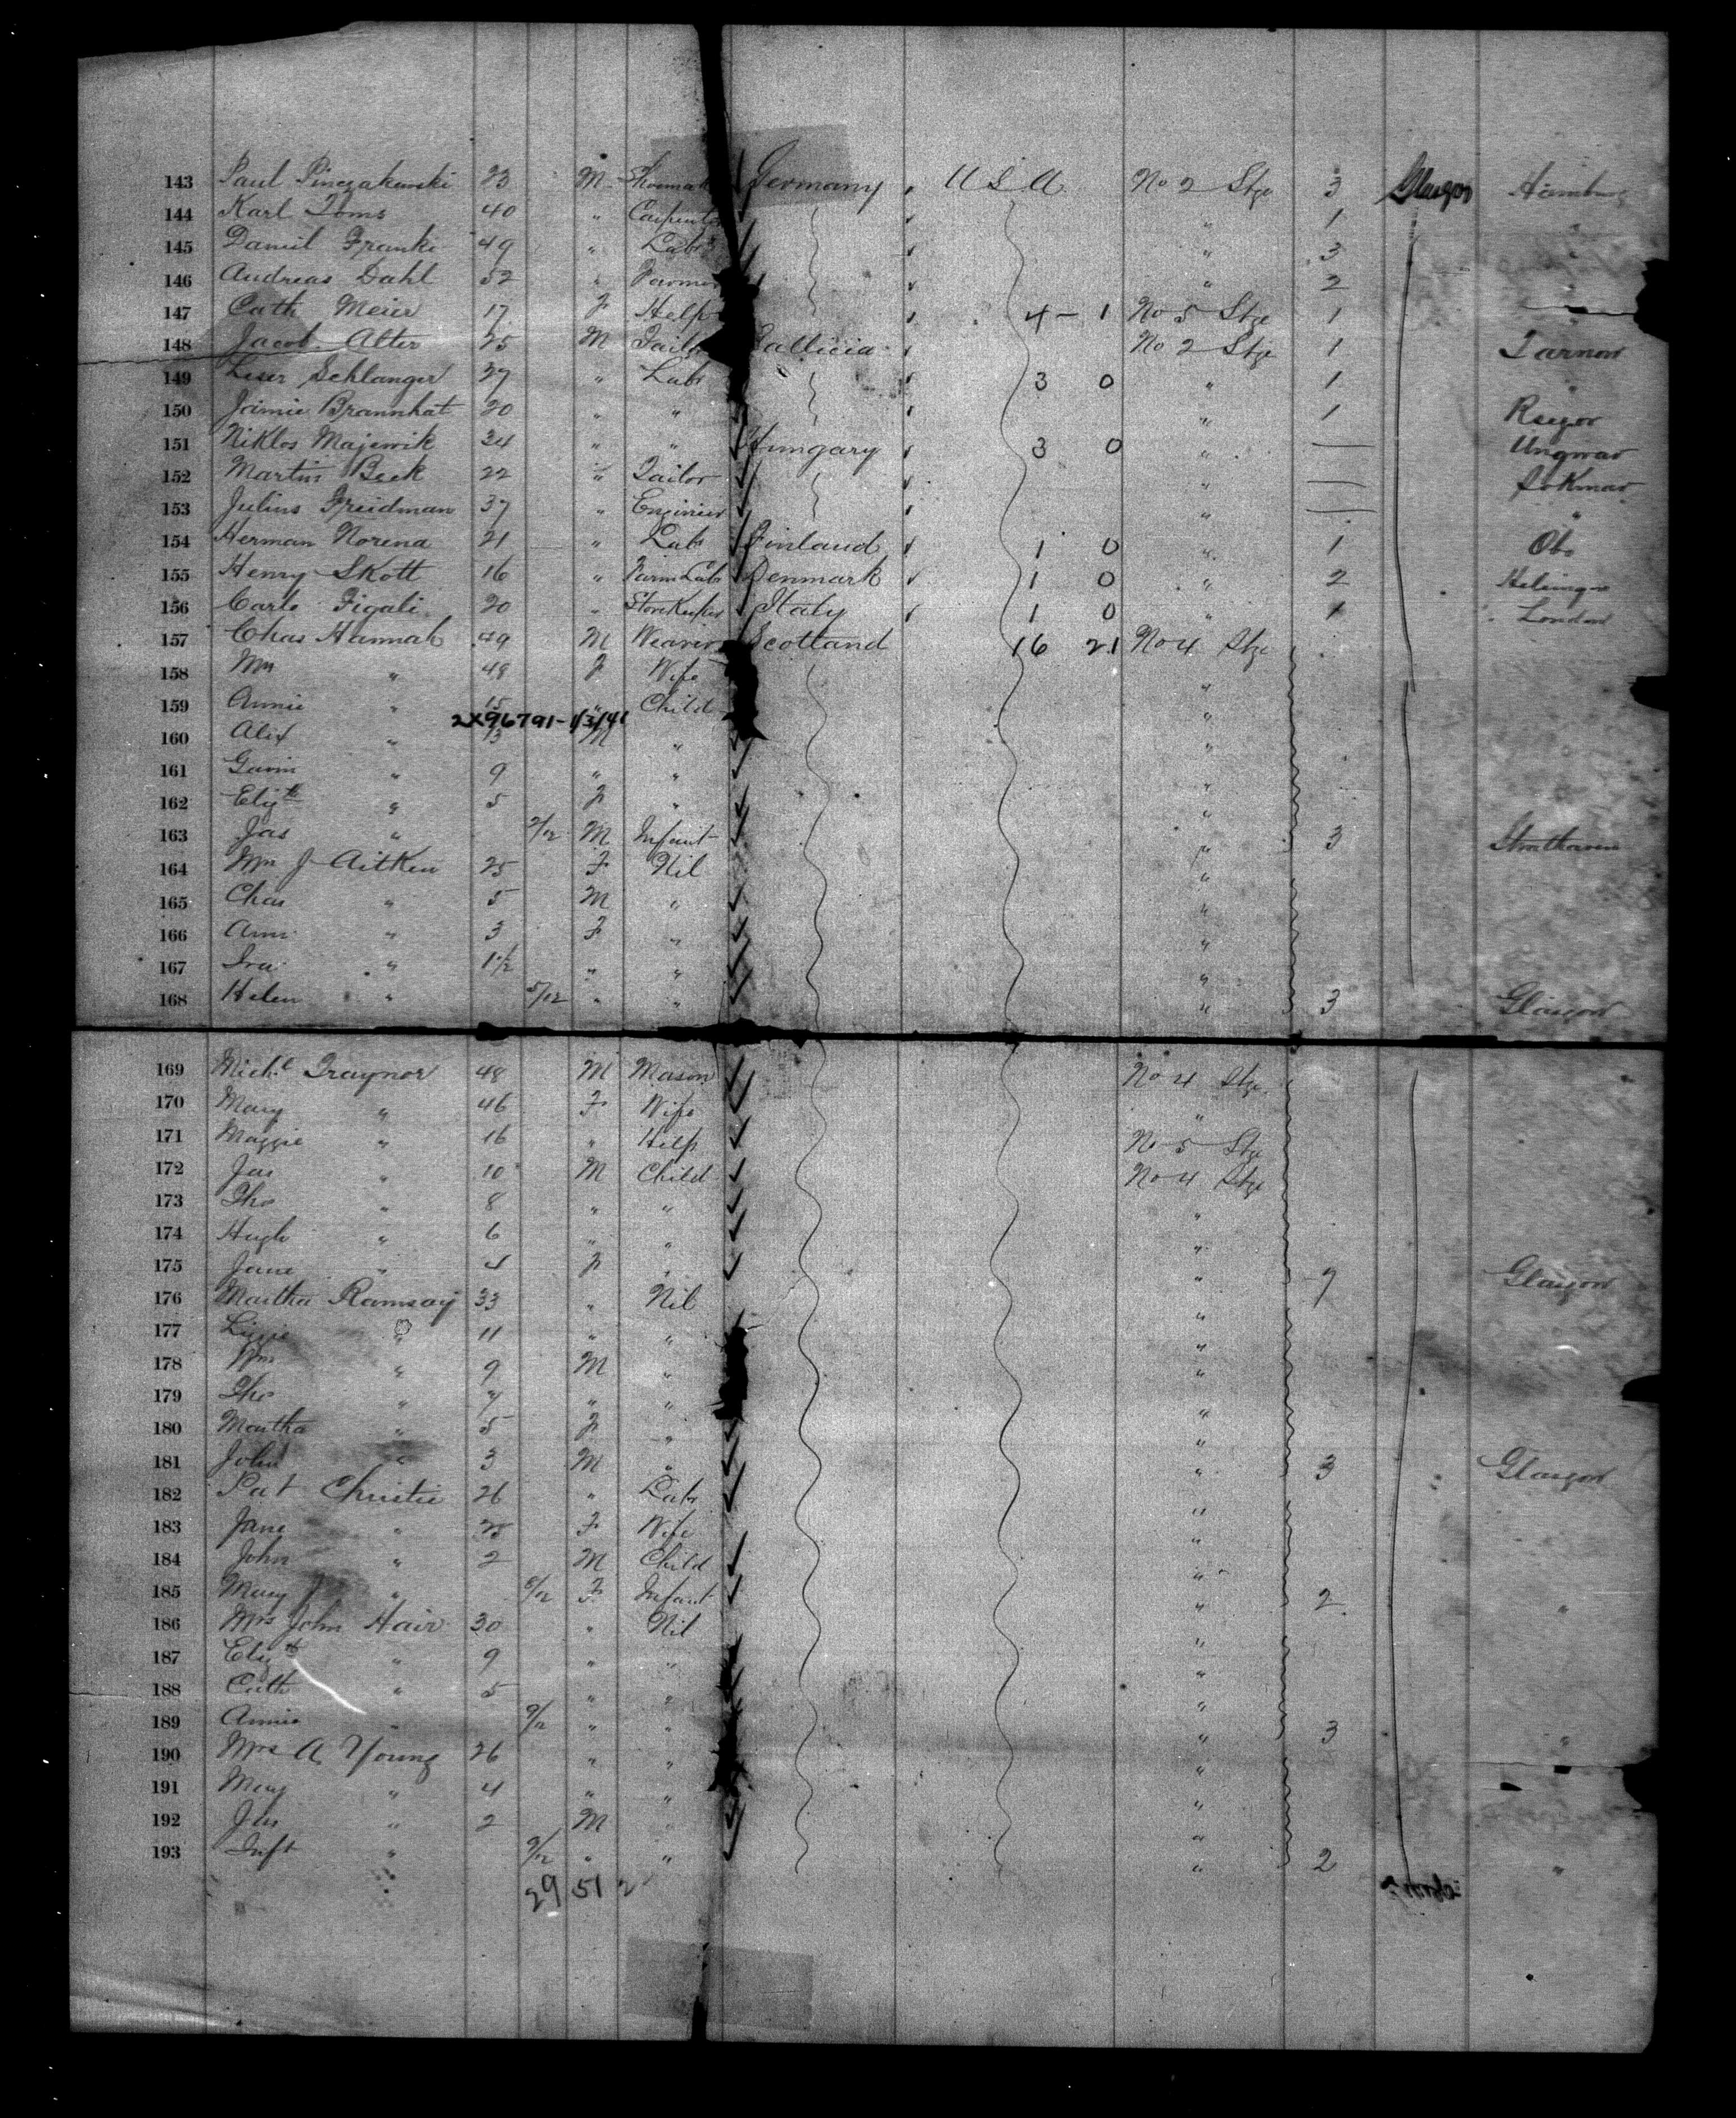 143 Paul Pinczakowski 23 M Shoemak Germany U S A No 2 Stge 3 Glasgow Hamburg
144 Karl Toms 40 " Carpenter " 1 "
145 Daniel Franke 49 " Labr " 3 "
146 Andreas Dahl 52 " Farmer " 2
147 Cath Meier 17 F Help 4 - 1 No 5 Stge 1
148 Jacob Alter 25 M Tailor Gallicia No 2 Stge 1 Tarnow
149 Leser Schlanger 37 " Labr 3 0 " 1 "
150 Brannhat 20 " " " 1
151 Niklos Majernik 34 " " Hungary 3 0 " — Ungwar
152 Martin Beck 22 " Tailor " —
153 Julius Freidman 37 " Engineer " — "
154 Herman Norena 21 " Labr Finland 1 0 " 1 Obo
155 Henry Skott 16 " Farm Labr Denmark 1 0 " 2
156 Carlo Figali 20 " Storekeeper Italy 1 0 " 1 London
157 Chas Hannah 49 M Weaver Scotland 16 21 No 4 Stge
158 " 48 F Wife "
159 Annie " 15 " Child "
2X96791-1/3/41
160 Alex " 13 M " "
161 Gavin " 9 " " "
162 Elizth " 5 F " "
163 Jas " M Infant " 3 Strathaven
164 J Aitken 25 F Nil "
165 Chas " 5 M " "
166 " 3 F " "
167 " 1 1/2 " " "
168 Helen " 5/12 " " " 3 Glasgow
169 Michl Traynor 48 M Mason No 4 Stge
170 Mary " 46 F Wife "
171 Maggie " 16 " Help No 5 Stge
172 Jas " 10 M Child No 4 Stge
173 Tho " 8 " " "
174 Hugh " 6 " " "
175 Jane " 4 F " " 7 Glasgow
176 Martha Ramsay 33 " Nil "
177 Lizzie " 11 " " "
178 Wm " 9 M " "
179 Tho " 7 " " "
180 Martha " 5 F " "
181 John " 3 M " " 3 Glasgow
182 Pat Christie 26 " Labr "
183 Jane " 25 F Wife "
184 John " 2 M Child "
185 Mary J " 8/12 F Infant " 2 "
186 Mrs John Hair 30 " Nil "
187 Elizth " 9 " " "
188 Cath " 5 " " "
189 Annie " 9/12 " " " 3 "
190 Mrs A Young 26 " " "
191 Mary " 4 " " "
192 " 2 M " "
193 Inft " 9/12 " " " 2 "
29 51 2